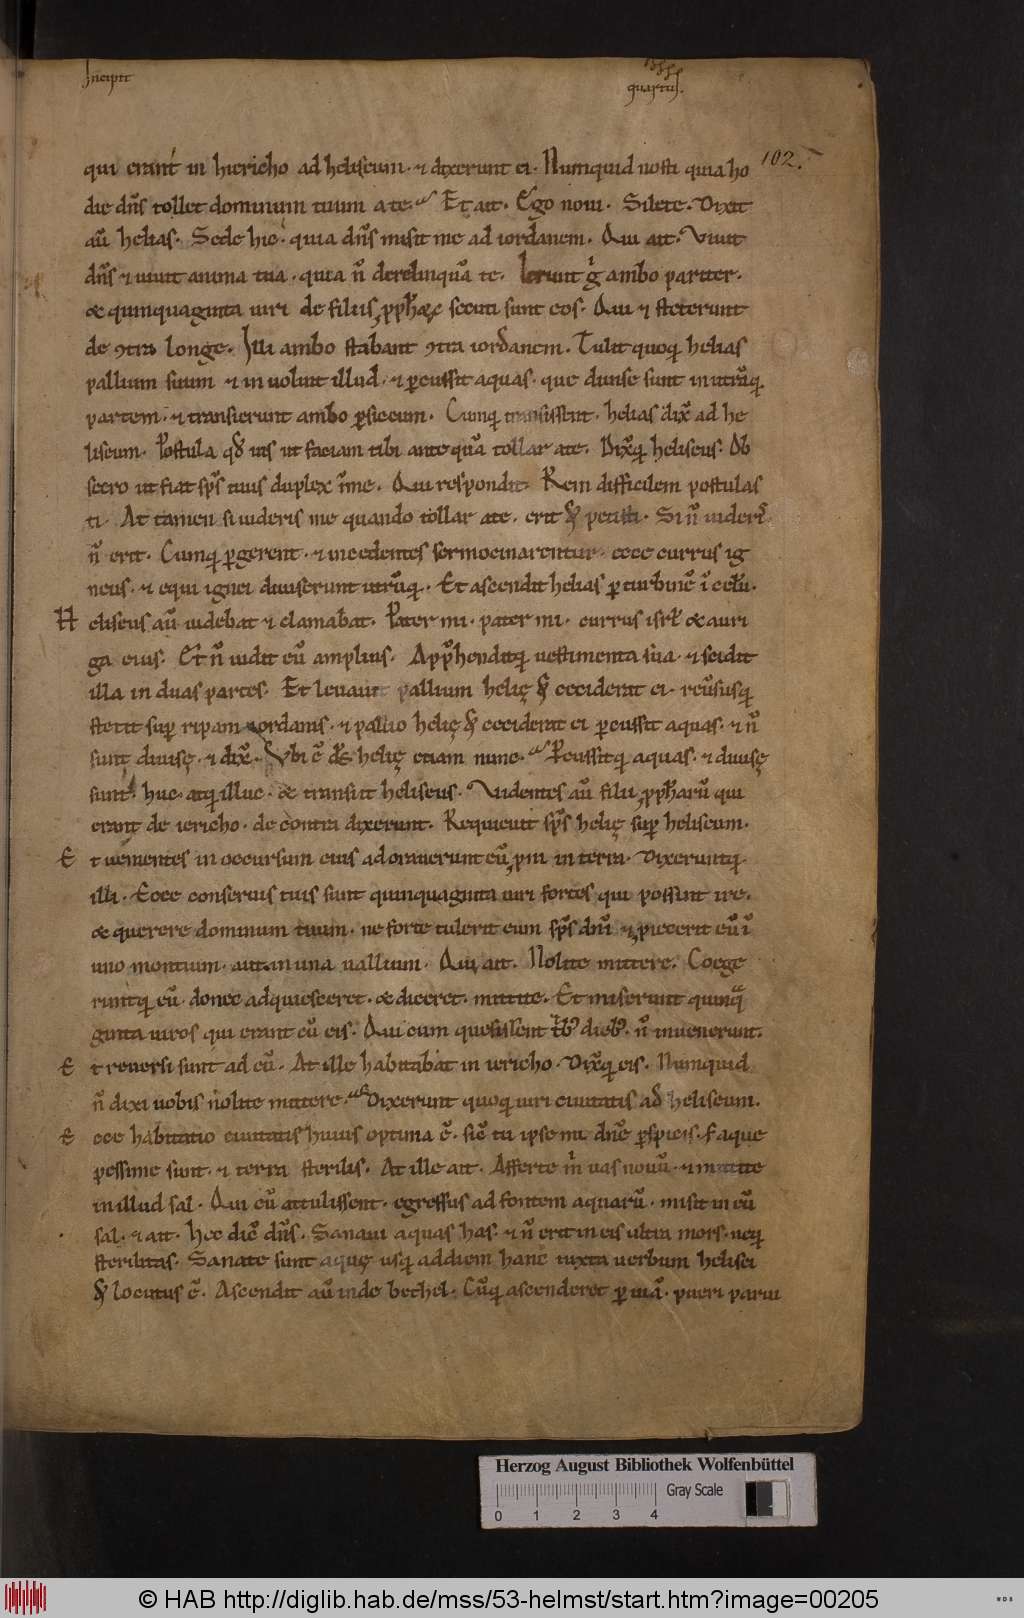 Incipit
quartus.
102.
qui erant in hiericho ad heliseum · ⁊ dixerunt ei · Numquid nosti quia ho
die dn̄s tollet dominum tuum a te. Et ait. Ego noui. Silete. Dixit
aū helias. Sede hic · quia dn̄s misit me ad iordanem. Qui ait. Viuit
dn̄s ⁊ uiuit anima tua · quia n̄ derelinquā te. Ierunt gͥ ambo pariter ·
& quinquaginta uiri de filiis ꝓph̄aꝝ secuti sunt eos. Qui ⁊ steterunt
de ꝯtra longe. Illi ambo stabant ꝯtra iordanem. Tulit quoq; helias
pallium suum ⁊ inuoluit illud · ⁊ ꝑcussit aquas · que diuise sunt in utrāq;
partem · ⁊ transierunt ambo ꝑ siccum. Cumq; transissent · helias dix̄ ad he
liseum. Postula qd̄ uis ut faciam tibi antequā tollar a te. Dix̄q; heliseus. Ob
secro ut fiat sp̄s tuus duplex ī me. Qui respondit. Rem difficilem postulas
ti · At tamen si uideris me quando tollar a te · erit qd̄ petisti · Si n̄ uideris
n̄ erit. Cumq; ꝑgerent · ⁊ incedentes sermocinarentur · ecce currus ig
neus · ⁊ equi ignei diuiserunt utrūq; · Et ascendit helias ꝑ turbinē ī celū.
H eliseus aū uidebat ⁊ clamabat. Pater mi · pater mi · currus isrl̄ & auri
ga eius. Et n̄ uidit eū amplius. App̄henditq; uestimenta sua · ⁊ scidit
illa in duas partes. Et leuauit pallium helię qd̄ ceciderat ei · reūsusq;
stetit suꝑ ripam iordanis · ⁊ pallio helię qd̄ ceciderat ei ꝑcussit aquas · ⁊ n̄
sunt diuisę · ⁊ dix̄. Vbi ē ds̄ helię etiam nunc. Percussitq; aquas · ⁊ diuisę
sunt huc atq; illuc · & transiit heliseus. Videntes aū filii ꝓph̄arū qui
erant de iericho · de contra dixerunt. Requieuit sp̄s helię suꝑ heliseum.
E t uenientes in occursum eius adorauerunt eū ꝓni in terra · Dixeruntq;
illi. Ecce cum seruis tuis sunt quinquaginta uiri fortes qui possint ire.
& querere dominum tuum · ne forte tulerit eum sp̄s dn̄i ⁊ ꝓiecerit eū ī
uno montium · aut in una uallium · Qui ait. Nolite mittere. Coege
runtq; eū · donec adquiesceret · & diceret · mittite. Et miserunt quinq̄
ginta uiros qui erant cū eis. Qui cum quesissent trib; dieb; · n̄ inuenerunt.
E t reuersi sunt ad eū. At ille habitabat in iericho · Dix̄q; eis. Numquid
n̄ dixi uobis nolite mittere. Dixerunt quoq; uiri ciuitatis ad heliseum.
E cce habitatio ciuitatis huius optima ē · sic̄ tu ipse mi dn̄e ꝑspicis. Saque
pessime sunt · ⁊ terra sterilis. At ille ait. Afferte m̄ uas nouū · ⁊ mittite
in illud sal. Qui cū attulissent · egressus ad fontem aquarū · misit in eū
sal · ⁊ ait. hec dic̄ dn̄s. Sanaui aquas has · ⁊ n̄ erit in eis ultra mors · neq;
sterilitas. Sanate sunt aquę usq; ad diem hanc iuxta uerbum helisei
qd̄ locutus ē. Ascendit aū inde bethel. Cūq; ascenderet ꝑ uiā · pueri parui
Herzog August Bibliothek Wolfenbüttel
Gray Scale
0 1 2 3 4
© HAB http://diglib.hab.de/mss/53-helmst/start.htm?image=00205